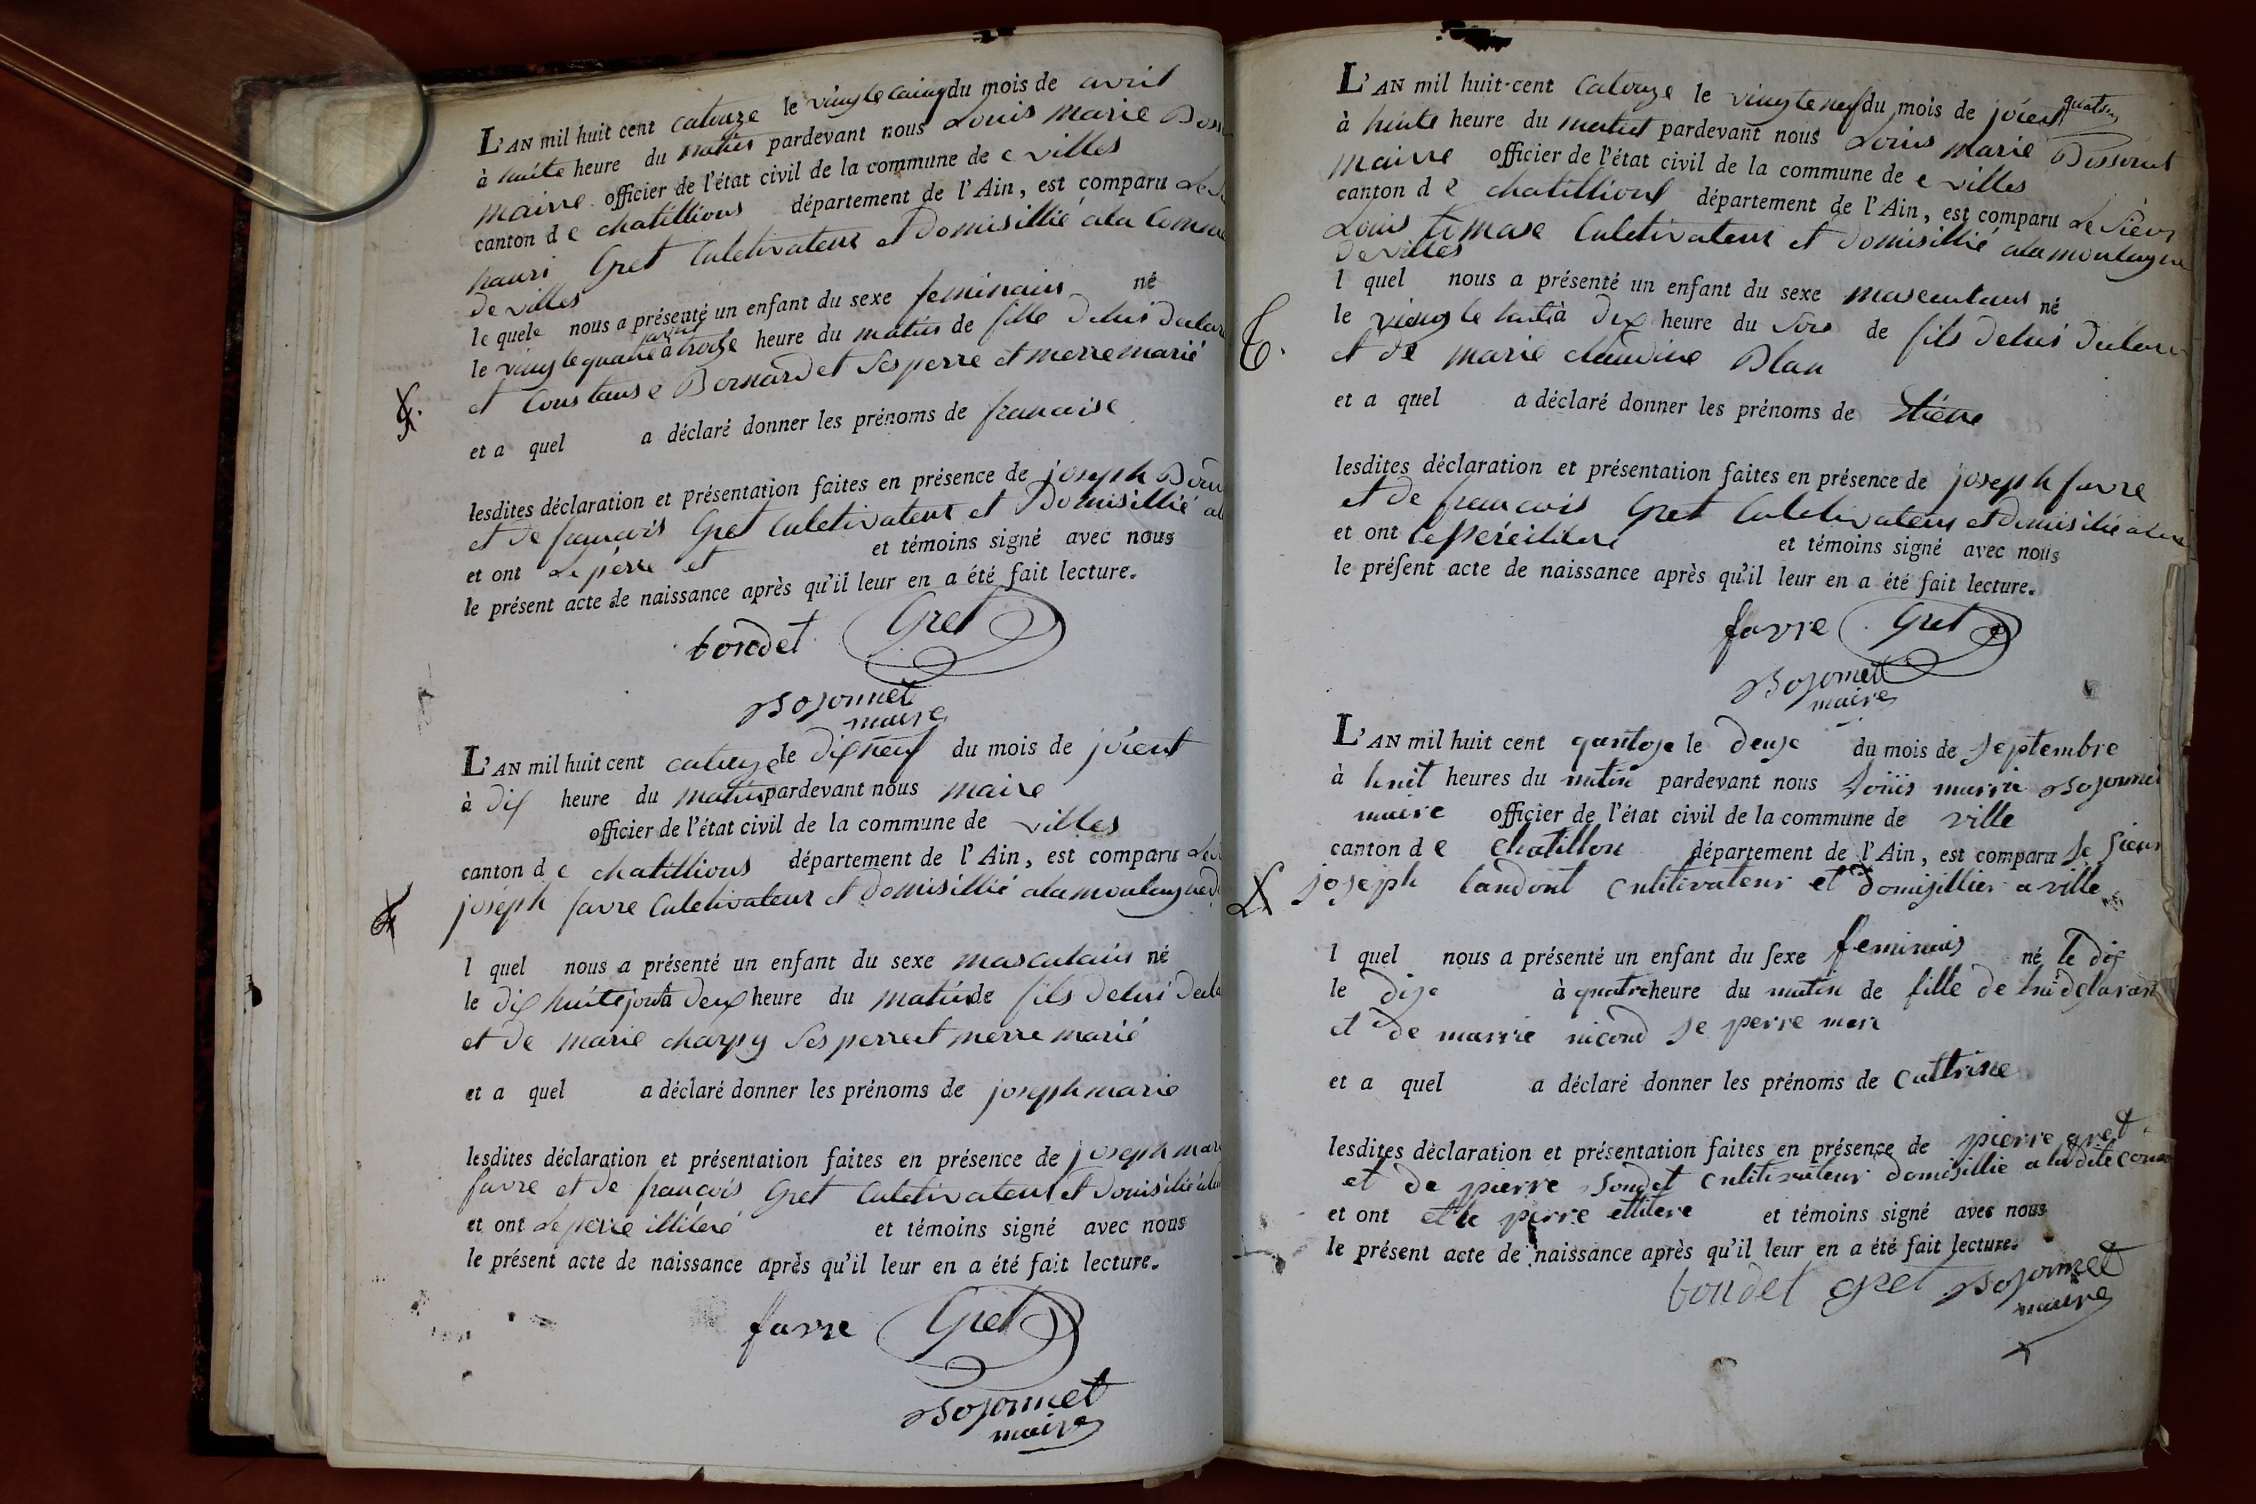 L'AN mil huit cent catouze le vingtecainq du mois de avril
à huite heure du matin pardevant nous Louis Marie
maire officier de l'état civil de la commune de e villes
canton d e chatillions département de l'Ain, est comparu Le
hanri Gret Culetivateur et Domisillié ala Comune
de villes
le quele nous a présenté un enfant du sexe feminain né
le vingtequatre avril à troize heure du matin de fille Delui Declara
et Constanse Bornard et Ses perre et merre marié
et a quel a déclaré donner les prénoms de francoise
lesdites déclaration et présentation faites en présence de joseph
et De francois Gret Culetivateur et Domisillié
et ont Le pérre et et témoins signé avec nous
le présent acte de naissance après qu'il leur en a été fait lecture.
bondet Gret
Bosonnet
maire
L'AN mil huit cent catouze le Dixneuf du mois de joient
à Dix heure du matin pardevant nous maire
officier de l'état civil de la commune de villes
canton d e chatillions département de l'Ain, est comparu Le
joséph favre Culetivateur et Domisillié alamontagne
l quel nous a présenté un enfant du sexe masculain né
le Dix huite jouta Deux heure du matin de fils Delui
et De marie charpy Ses perre et merre marié
et a quel a déclaré donner les prénoms de joseph marie
lesdites déclaration et présentation faites en présence de joseph
favre et De francois Gret Culetivateur et Domisilié
et ont Le perre illiteré et témoins signé avec nous
le présent acte de naissance après qu'il leur en a été fait lecture.
favre Gret
Bosonnet
maire
L'AN mil huit-cent Catouze le vingteneuf du mois de joient quatorze
à huite heure du matin pardevant nous Louis Marie
Maire officier de l'état civil de la commune de e villes
canton d e chatilliont département de l'Ain, est comparu Le Sieur
Louis tomase Culetivateur et Domisillié alamontagne
De villes
l quel nous a présenté un enfant du sexe masculain né
le vingte huit à Dix heure du Soir de fils Delui Declara
et De marie claudine Blan
et a quel a déclaré donner les prénoms de
lesdites déclaration et présentation faites en présence de joseph favre
et De francois Gret Culetivateur et Domisilié
et ont et témoins signé avec nous
le présent acte de naissance après qu'il leur en a été fait lecture.
favre Gret
Bosonnet
maire
L'AN mil huit cent qantoze le deuse du mois de septembre
à huit heures du matin pardevant nous Louis marrie Bosonnet
maire officier de l'état civil de la commune de ville
canton d e Chatillon département de l'Ain, est comparu le Sieur
joseph tandont Cultivateur et domisillier a ville
l quel nous a présenté un enfant du sexe feminais né le dix
le dise à quatre heure du matin de fille de lui delarant
et de marrie nicoud se perre mere
et a quel a déclaré donner les prénoms de Cattrine
lesdites déclaration et présentation faites en présence de pierre gret
et de pierre Bondet Cultivateur domisillie a ladite
et ont et le pirre ellitere et témoins signé avec nous
le présent acte de naissance après qu'il leur en a été fait lecture.
bondet gret Bosonnet
maire